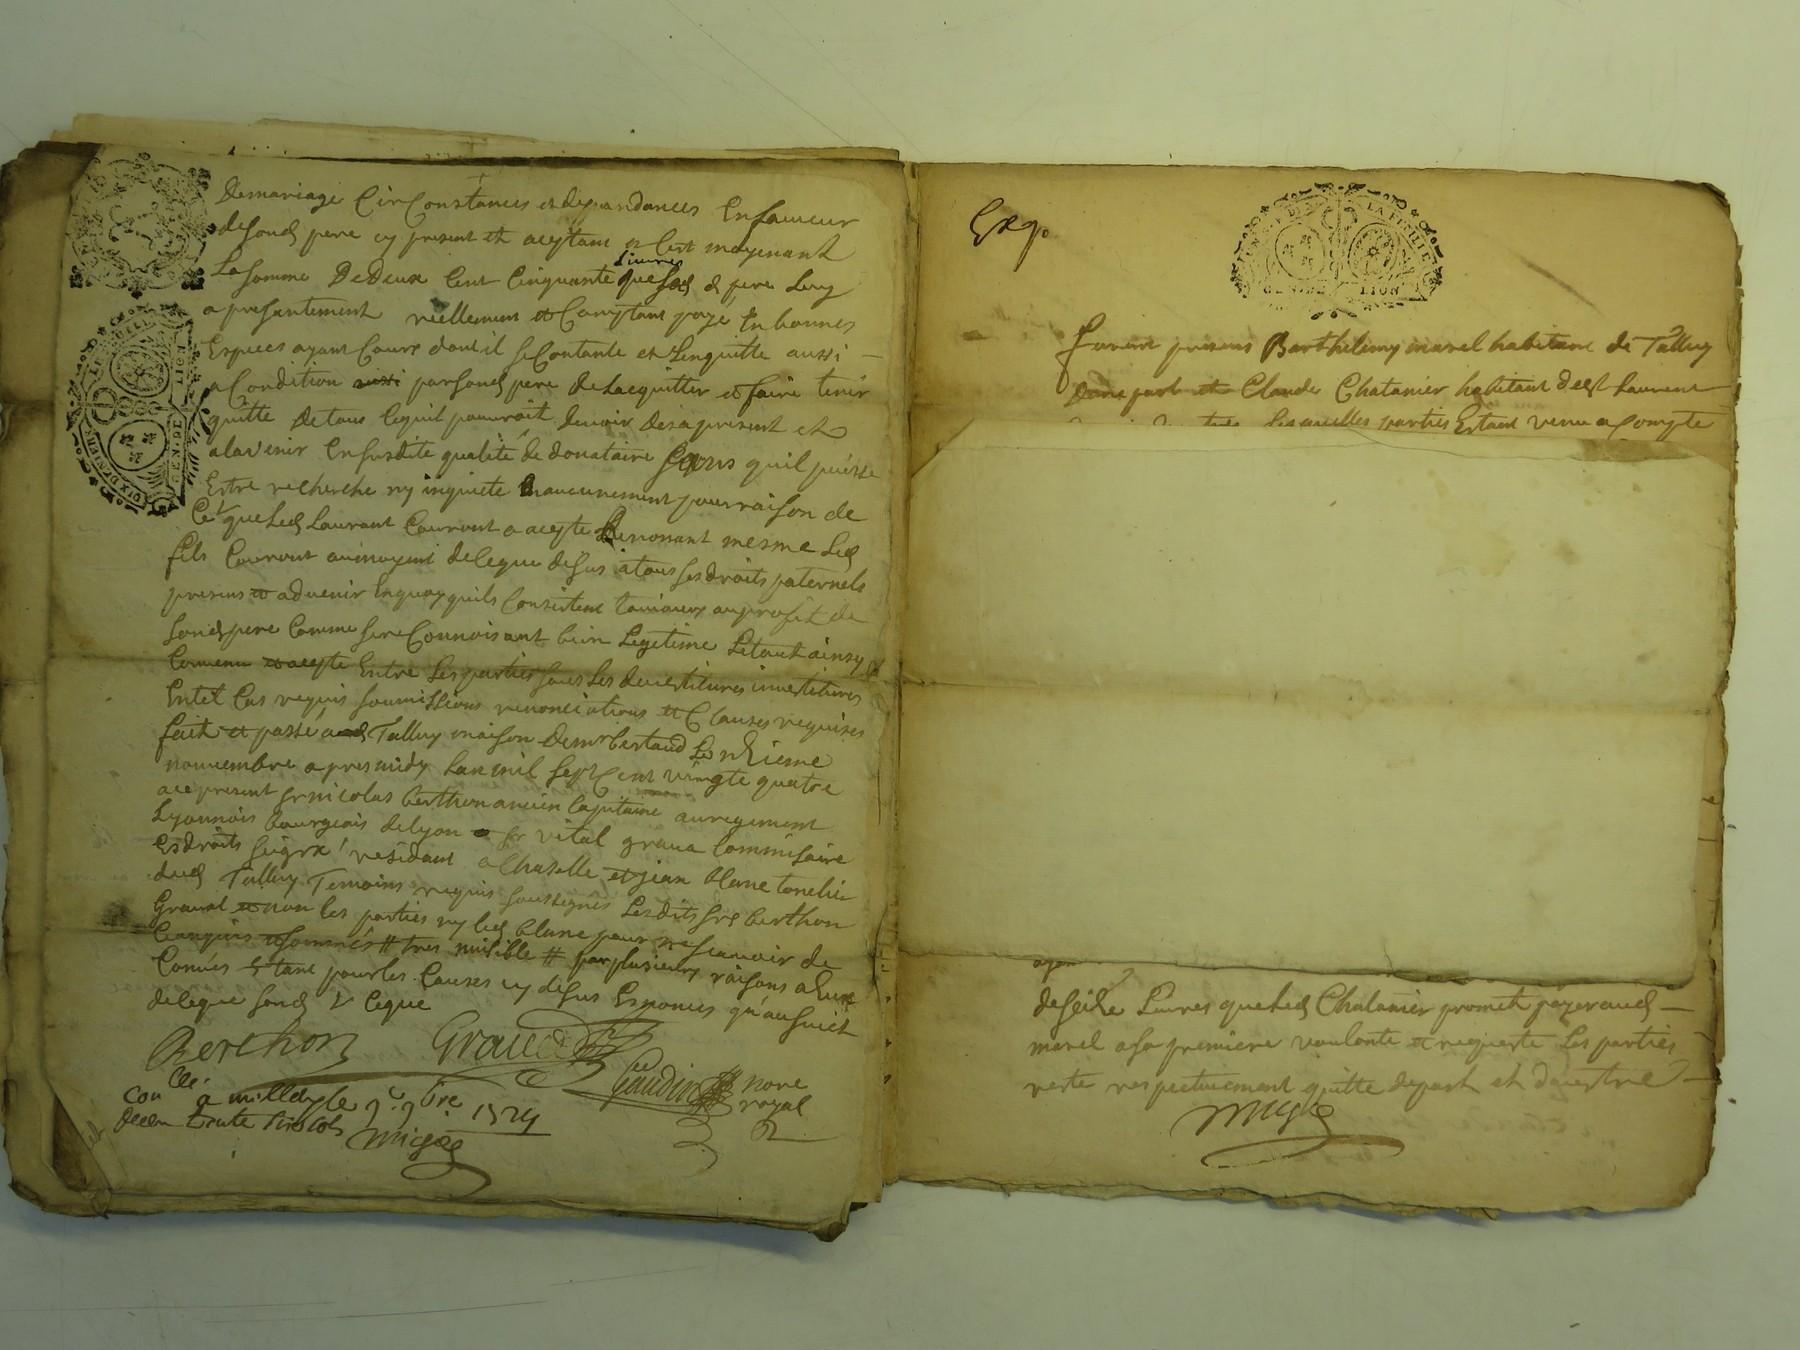 Demariage Circonstances et depandances En faueur
de sond pere cy present et aceptant et C'est moyenant
La somme De Deux Cent Cinquante liures que sond pere Luy
a presantement reellement et Comptant payé En bonnes
Especes ayant Cours dont il se Contante et L'enquitte aussi
a Condition par sond pere De Lacquitter et faire tenir
quitte De tous Ce quil pourroit deuoir des a present et
alavenir En susditte qualité de donataire sans quil puisse
Estre recherche ny inquiete aucunement pour raison de
Ce que Led Laurant Couront a acepte Renonant mesme Led
fils Couront aumoyent de Ceque desus atous ses droits paternels
presens et aduenir En quoy quils Consistent tousiours au profit de
sond pere Comme se reConnoisant bien Legetime Le tout ainsy
Conuenu et acepte Entre Les parties sous Les deuestitures inuestitures
En tel Cas requis soumissions renonciations et Clauses requises
fait et passé aud Talluy maison de mr bertaud Le
nouembre apres midy Lan mil sept Cent vingte quatre
ace present sr nicolas berthon ancien Capitaine au regiment
Lyonnois bourgeois de Lyon sr vital graua Commisaire
Es droits seigrx residant a Chaselle et jean blane
dud Talluy Temoins requis soussignés Lesdits srs berthon
Grauat et non les parties ny led blane pour ne scauoir de
Ce enquis et sommés # tres nuisible # par plusieurs raisons
Conües Et tant pour les Causes cy desus Enonces qu'au suiet
de Ceque sond Ceque
Berthon Graua
Gaudin
nore
royal
Con lé a millery le 9e 9bre 1724
trente sinc sols
migea
Exp.
LA FEUILLE
GEN. DE LION
Furent presens Barthelemy morel habitant de Talluy
Dune part et Claude Chatanier habitant de st Laurent
Lesquelles parties Estant venu a Compte
de seize Liures que Led Chatanier promet payer aud
morel a sa premiere voulonte et requeste Les parties
reste respectiuement quitte de part et dautre
migea